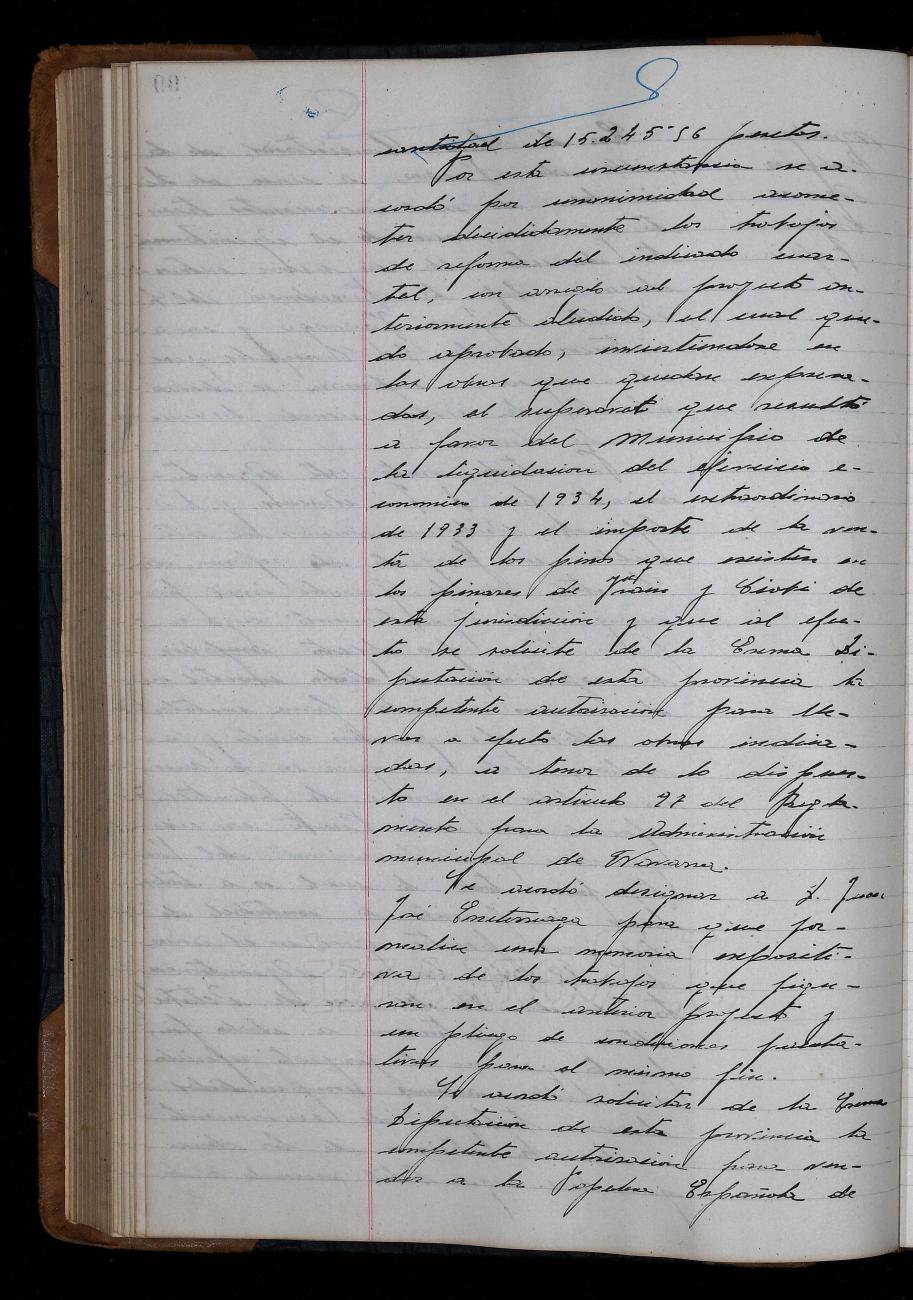 cantidad de 15.245'56 pesetas.
Por esta circunstancia se a-
cordó por unanimidad acome-
ter decididamente los trabajos
de reforma del indicado cuar-
tel, con arreglo al proyecto an-
teriormente aludido, el cual que-
do aprobado, invirtiendose en
las obras que quedan expresa-
das, el superavit que resultó
a favor del Municipio de
la liquidacion del ejercicio e-
conomico de 1934, el extraordinario
de 1933 y el importe de la ven-
ta de los pinos que existen en
los pinares de y de
esta jurisdicion y que al efec-
to se solicite de la Excma Di-
putacion de esta provincia la
competente autorizacion para lle-
var a efecto las obras indica-
das, a tenor de lo dispues-
to en el articulo 97 del Regla-
mento para la Administracion
municipal de Navarra.
Se acordó designar a D. Juan
José para que for-
malice una memoria expositi-
va de los trabajos que figu-
ran en el anterior proyecto y
un pliego de condiciones faculta-
tivas para el mismo fin.
Se acordó solicitar de la Excma
Diputacion de esta provincia la
competente autorizacion para ven-
der a la Papelera Española de